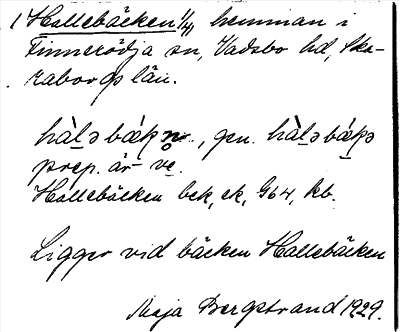 1 Hallebäcken 1/4 hemman i
Finnerödja sn, Vadsbo hd, Ska-
raborgs län.
hàlə bækn., gen. hàlə bækə
prep. är ve.
Hallebäcken bek, ek, G64, kb.
Ligger vid bäcken Hallebäcken
Maja Bergstrand 1929.